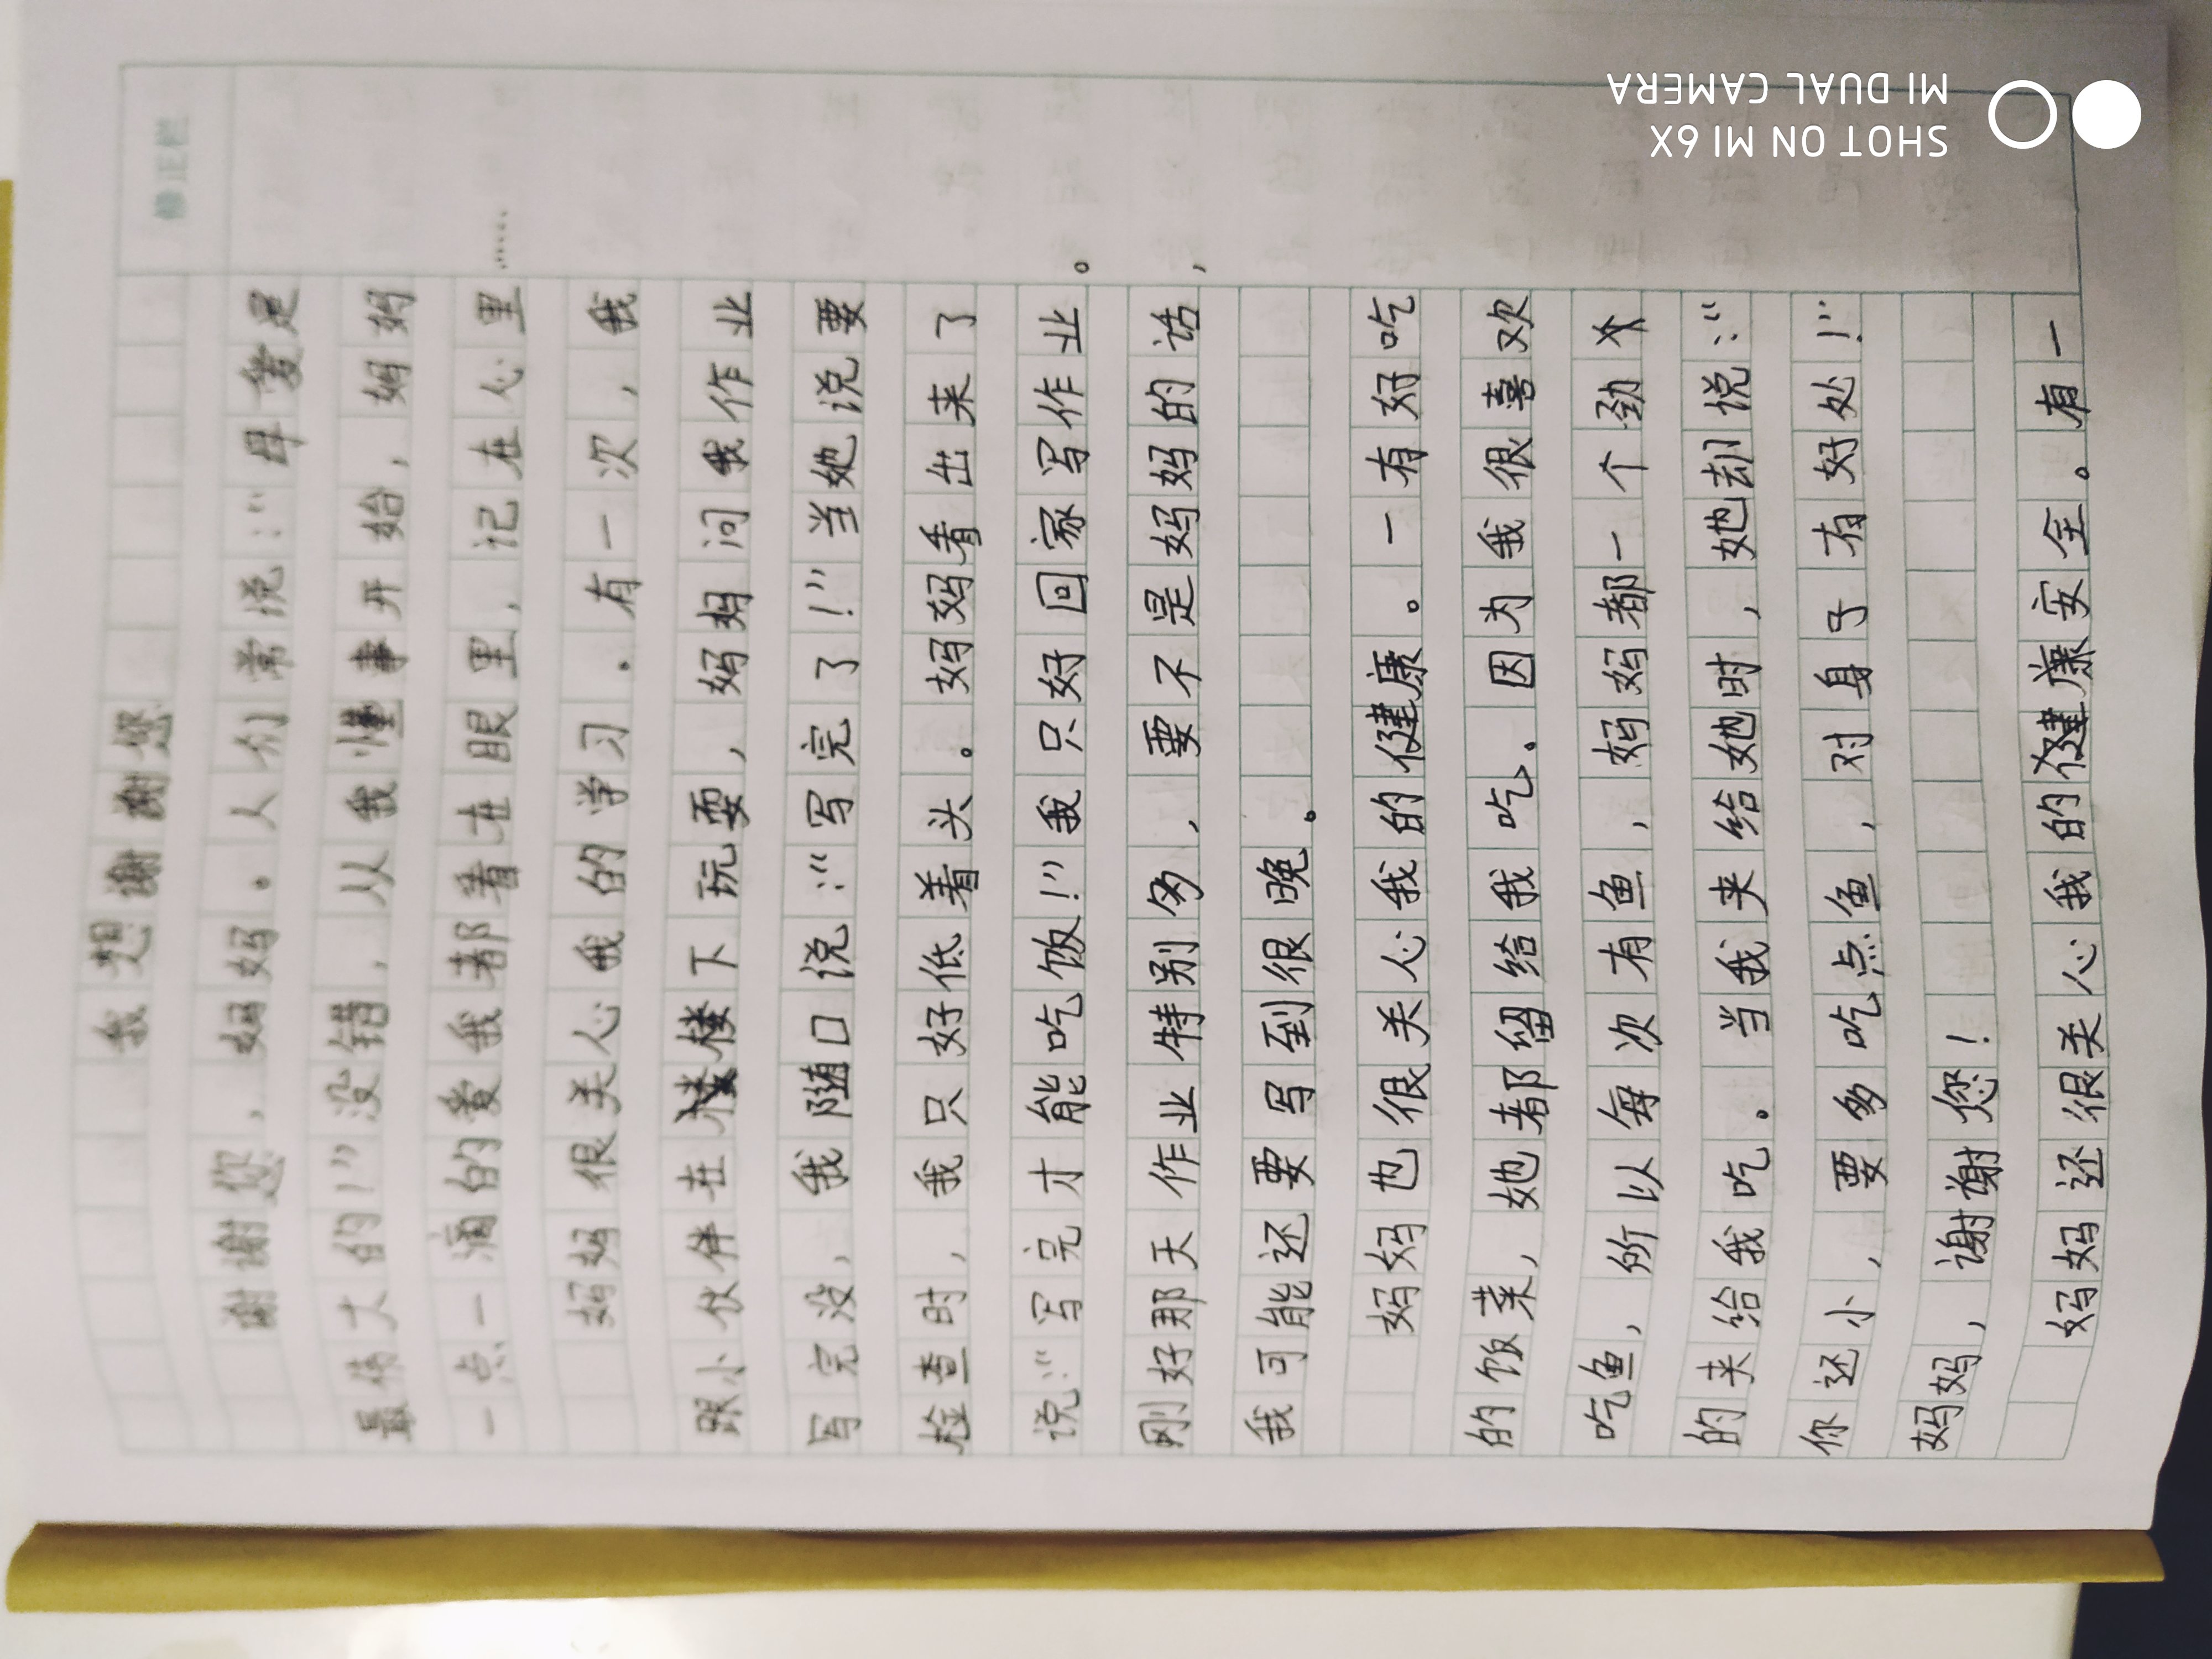 我想谢谢您
修正栏
谢谢您,妈妈。人们常说:“母爱是
最伟大的!”没错,从我懂事开始,妈妈
一点一滴的爱我都看在眼里,记在心里……
妈妈很关心我的学习。有一次,我
跟小伙伴在楼下玩耍,妈妈问我作业
写完没,我随口说:“写完了!”当她说要
检查时,我只好低着头。妈妈看出来了
说:“写完才能吃饭!”我只好回家写作业。
刚好那天作业特别多,要不是妈妈的话,
我可能还要写到很晚。
妈妈也很关心我的健康。一有好吃
的饭菜,她都留给我吃。因为我很喜欢
吃鱼,所以每次有鱼,妈妈都一个劲
的夹给我吃。当我夹给她时,她却说:“
你还小,要多吃点鱼,对身子有好处!”
妈妈,谢谢您!
妈妈还很关心我的健康安全。有一
SHOT ON MI 6X
MI DUAL CAMERA